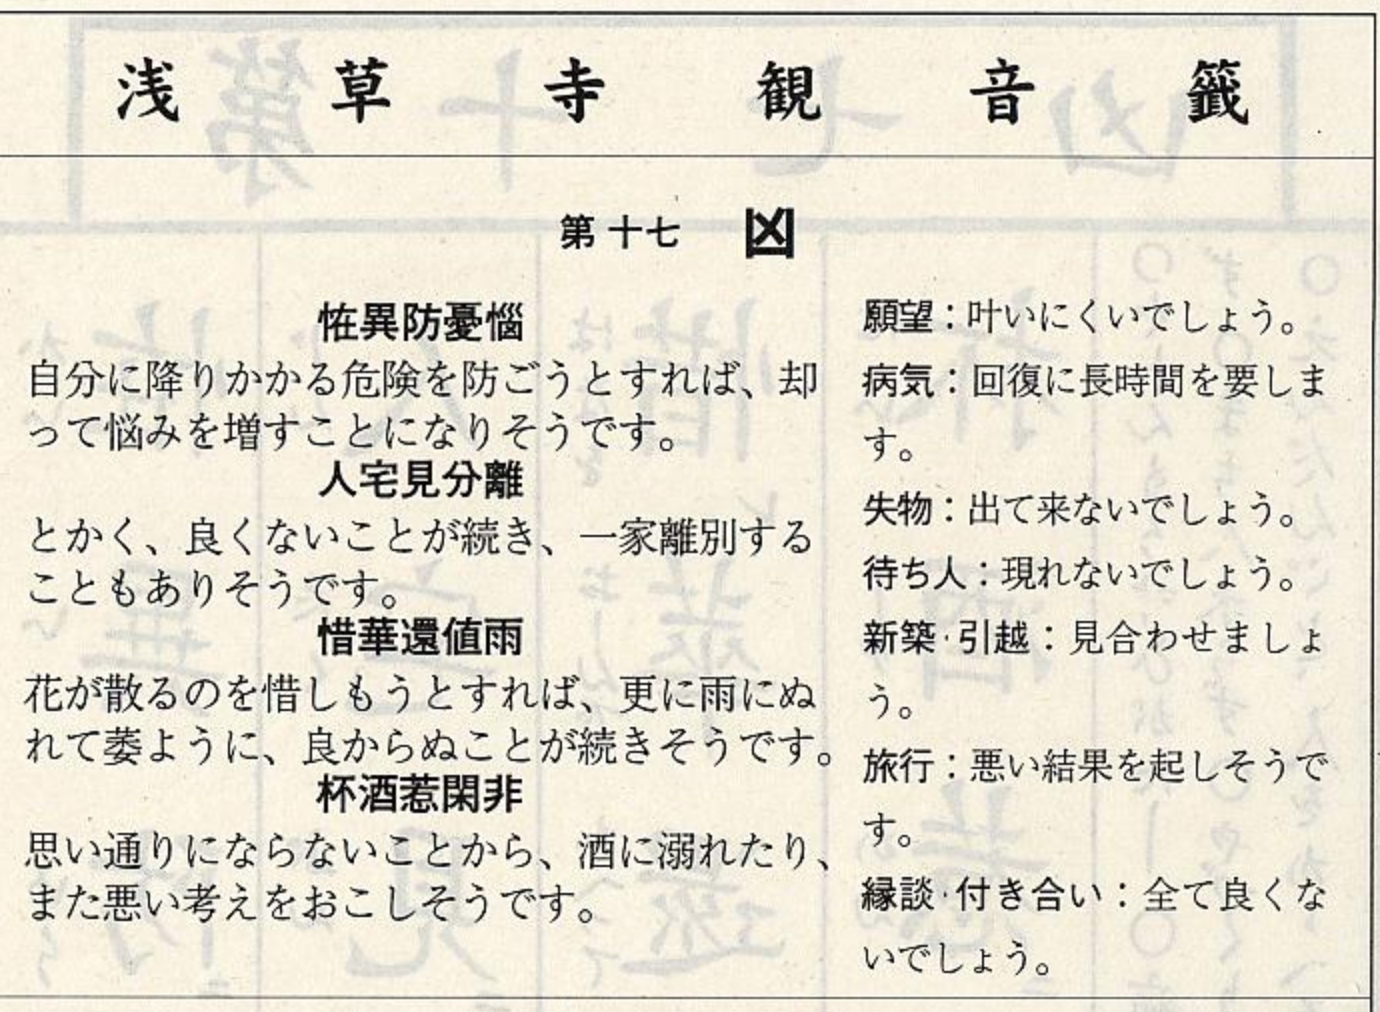 浅草寺観音籤
第十七 凶
恠異防憂惱
自分に降りかかる危険を防ごうとすれば、却
って悩みを増すことになりそうです。
人宅見分離
とかく、良くないことが続き、一家離別する
こともありそうです。
惜華還値雨
花が散るのを惜しもうとすれば、更に雨にぬ
れて萎ように、良からぬことが続きそうです。
杯酒惹閑非
思い通りにならないことから、酒に溺れたり、
また悪い考えをおこしそうです。
願望：叶いにくいでしょう。
病気：回復に長時間を要しま
す。
失物：出て来ないでしょう。
待ち人：現れないでしょう。
新築·引越：見合わせましょ
う。
旅行：悪い結果を起しそうで
す。
縁談·付き合い：全て良くな
いでしょう。